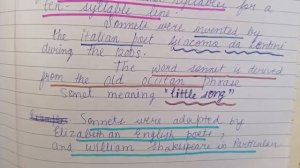 ten-syllable line.
Sonnets were invented by
the italian poet Giacomo da Lentini
during the 1200s.
The word sonnet is derived
from the old occitan phrase
Sonet meaning "little song"
Sonnets were adapted by
Elizabethan English poets,
and William Shakespeare in Particular